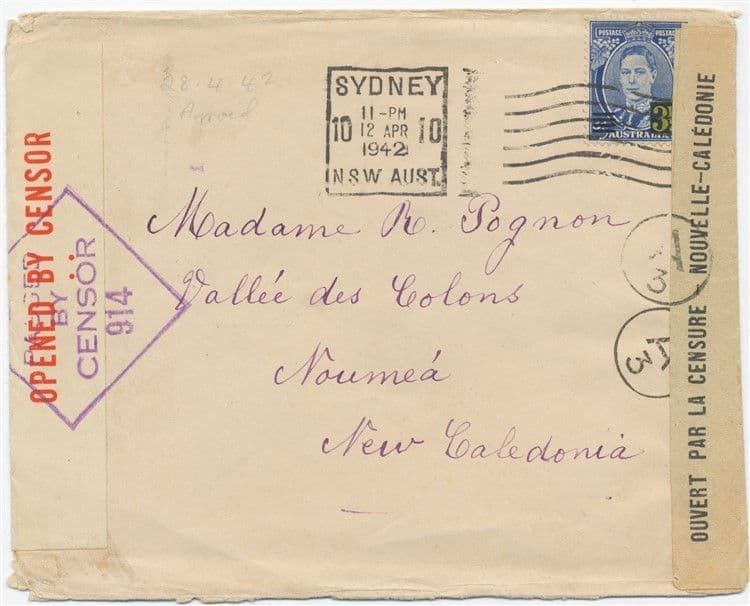 28.4.42
SYDNEY
11-PM
10 12 APR 10
1942
NSW AUST.
POSTAGE POSTAGE
3½
AUSTRALIA
Madame R. Pognon
Vallée des Colons
Nouméa
New Caledonia
OPENED BY CENSOR
PASSED
BY
CENSOR
914
OUVERT PAR LA CENSURE NOUVELLE-CALÉDONIE
3
3